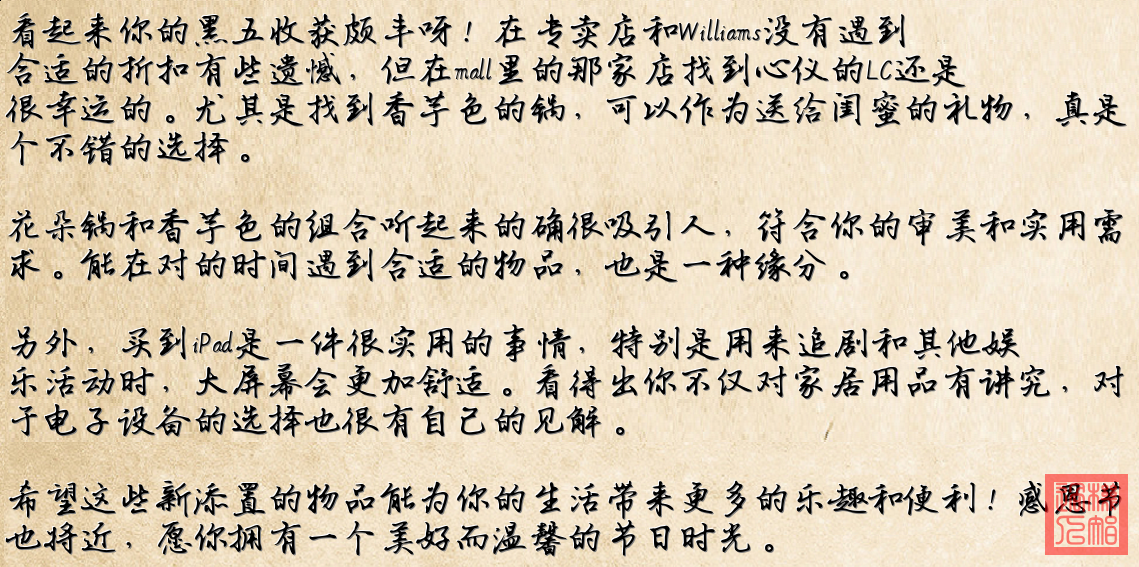 看起来你的黑五收获颇丰呀！在专卖店和Williams没有遇到
合适的折扣有些遗憾，但在mall里的那家店找到心仪的LC还是
很幸运的。尤其是找到香芋色的锅，可以作为送给闺蜜的礼物，真是
个不错的选择。
花朵锅和香芋色的组合听起来的确很吸引人，符合你的审美和实用需
求。能在对的时间遇到合适的物品，也是一种缘分。
另外，买到iPad是一件很实用的事情，特别是用来追剧和其他娱
乐活动时，大屏幕会更加舒适。看得出你不仅对家居用品有讲究，对
于电子设备的选择也很有自己的见解。
希望这些新添置的物品能为你的生活带来更多的乐趣和便利！感恩节
也将近，愿你拥有一个美好而温馨的节日时光。